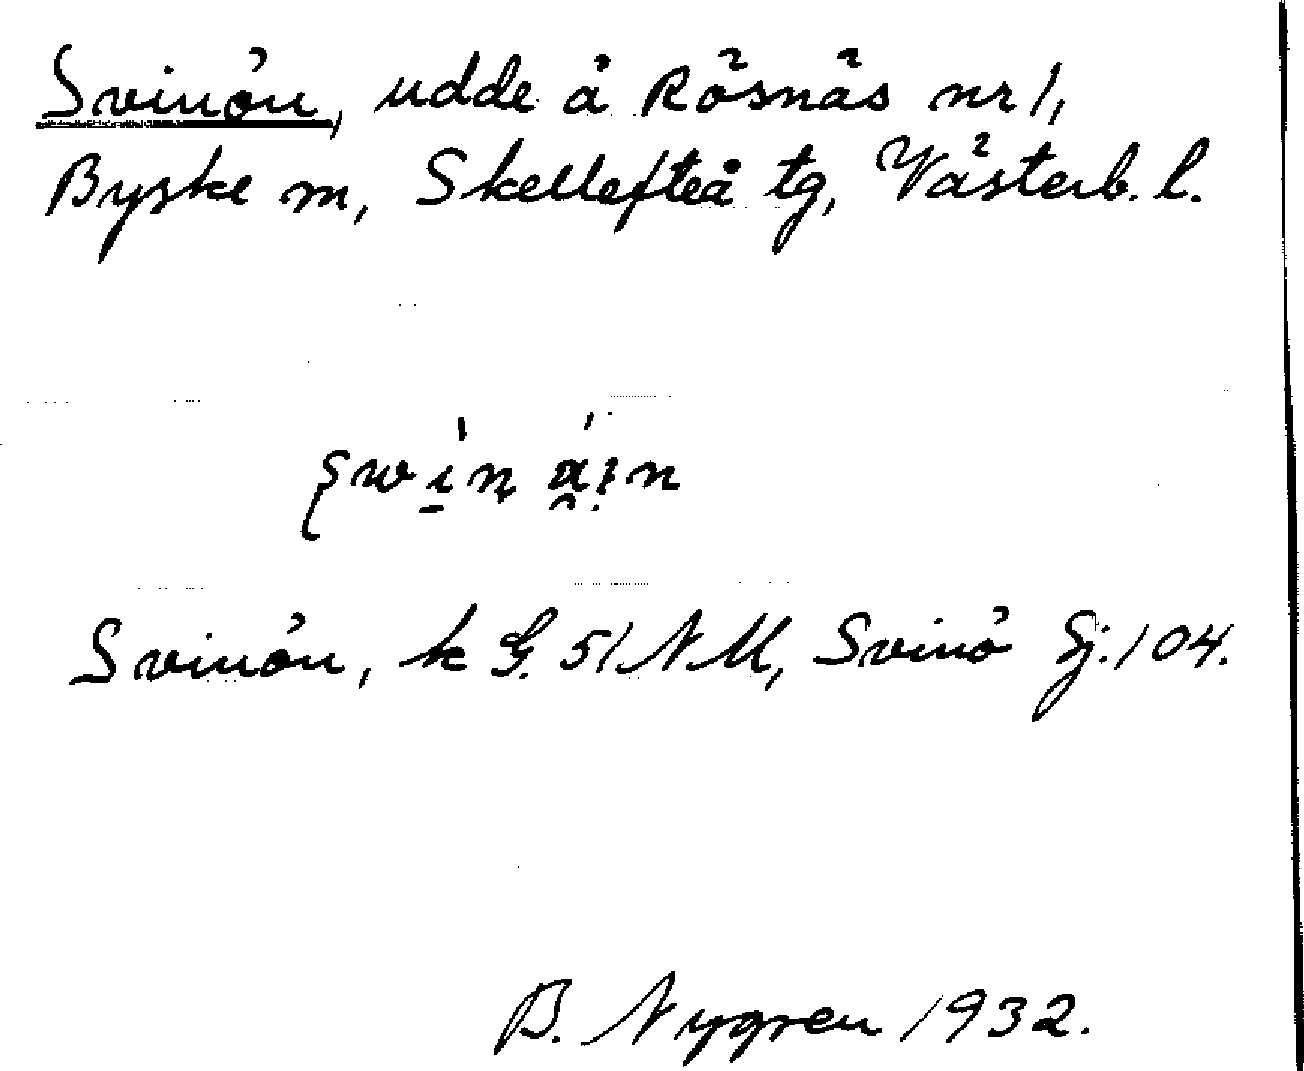 Svinön, udde å Rösnäs nr 1,
Byske sn, Skellefteå tg, Västerb. l.
Svinön, k G. 51 NM, Svinö Sj. 104.
B. Nygren 1932.